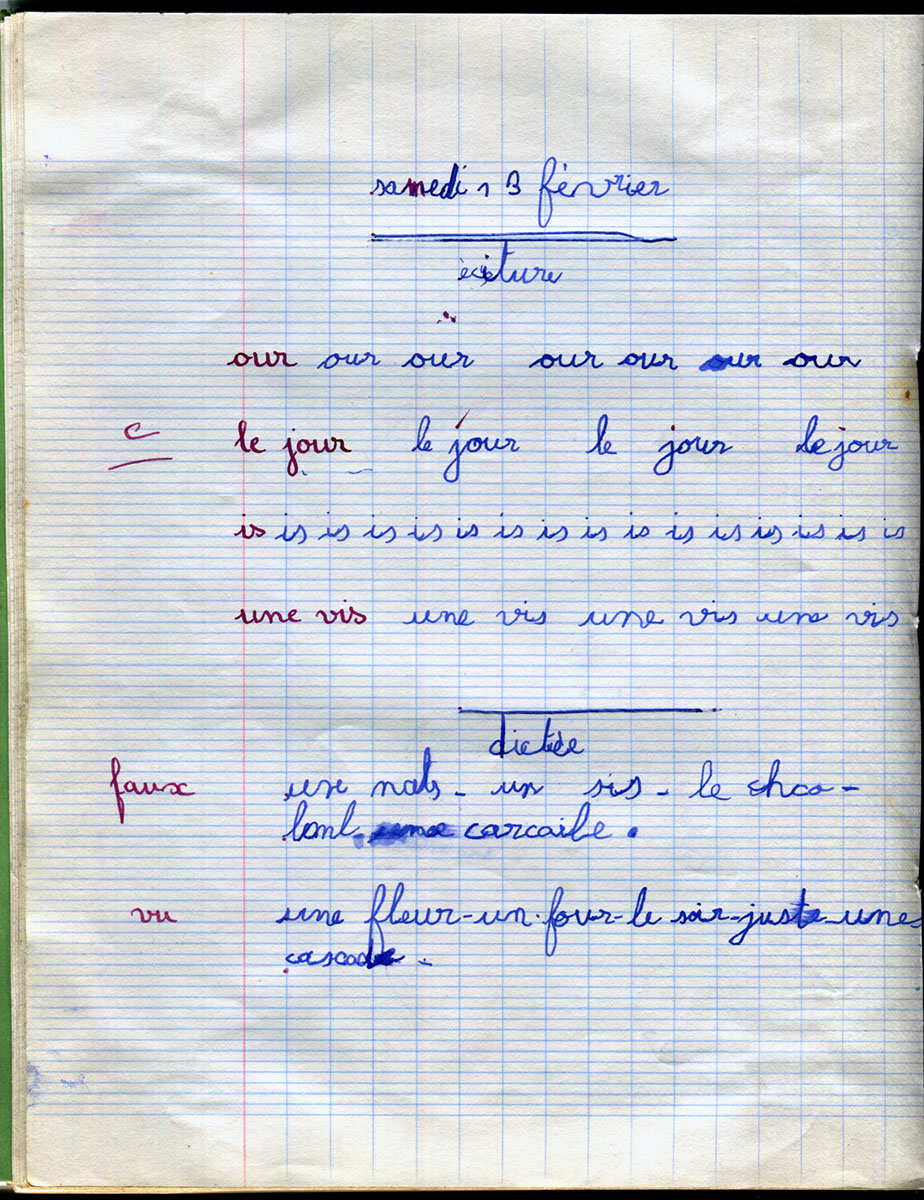 samedi 13 février
écriture
our our our our our our our
c le jour le jour le jour le jour
is is is is is is is is is is is is is is is is
une vis une vis une vis une vis
dictée
faux une nats - un sis - le choo-
lonl. une carcaibe.
vu une fleur - un four - le soir - juste - une
cascade -